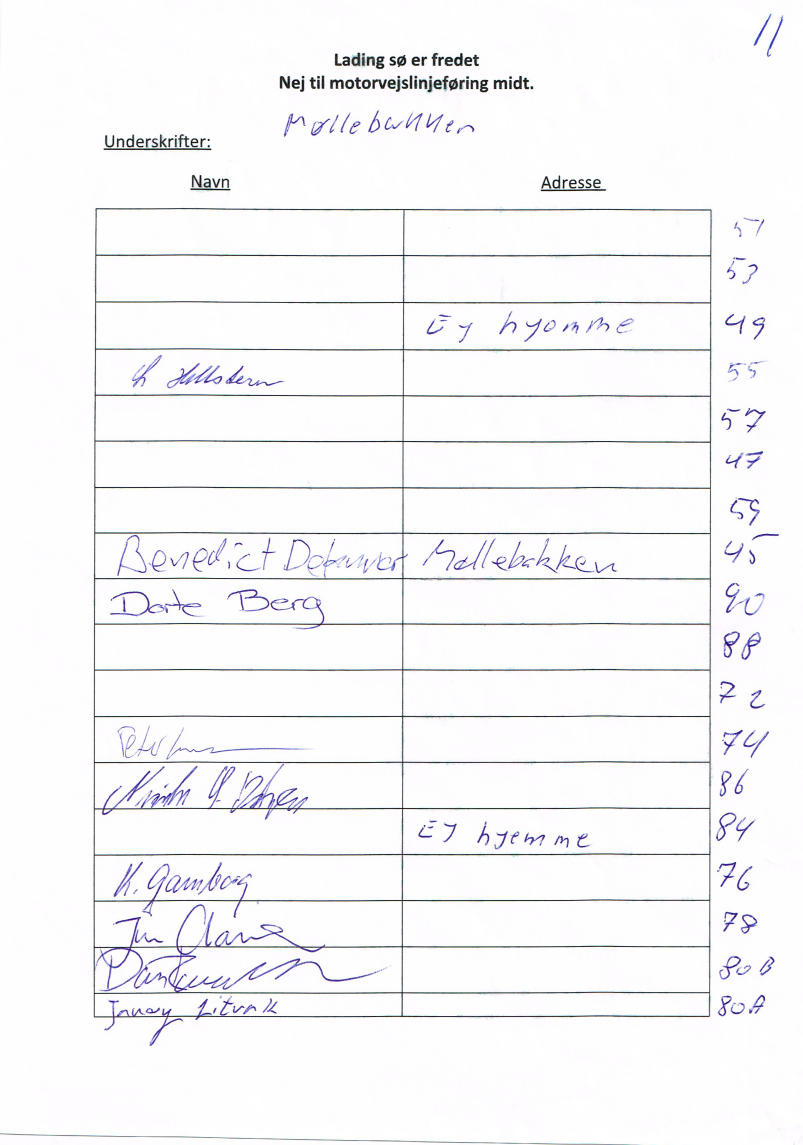 11
Lading sø er fredet
Nej til motorvejslinjeføring midt.
Møllebakken
Underskrifter:
Navn Adresse
51
53
Ej hjemme 49
55
57
47
59
Benedict Møllebakken 45
Dorte Berg 90
88
72
Peter 74
86
Ej hjemme 84
K. Gamborg 76
78
80 B
Litvak 80A